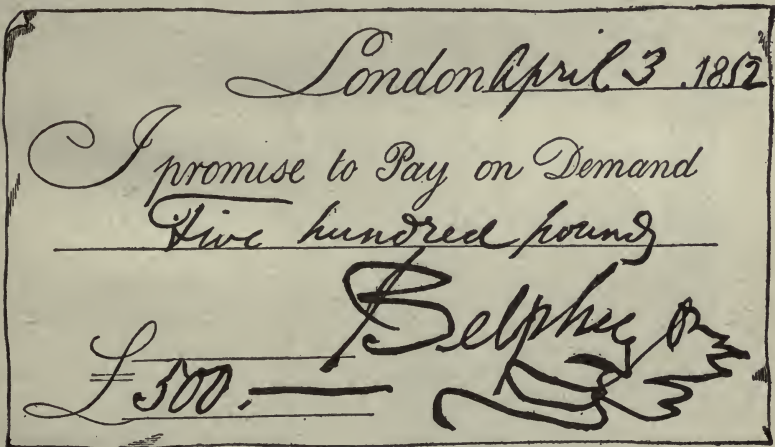 London April 3. 1852
I promise to Pay on Demand
Five hundred pounds
£500.—